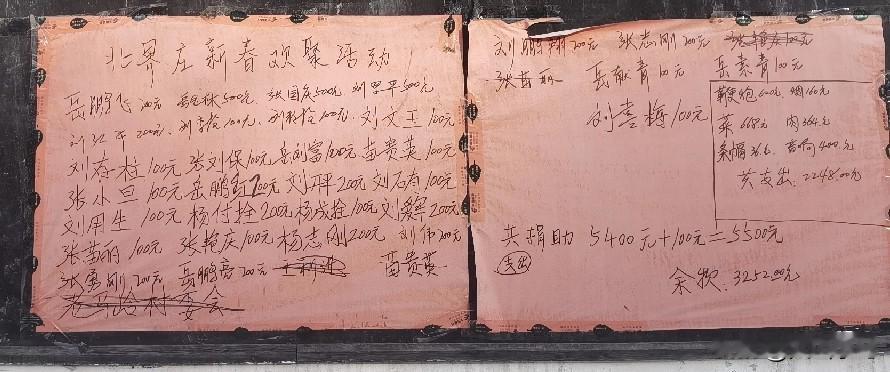 北界庄新春欢聚活动
岳鹏飞 200元 500元 张国庆500元 刘思平500元
200元 100元 100元 刘文王 100元
刘存柱100元 张刘保100元 岳刘富100元 苗贵英100元
张小旦 100元 岳鹏 200元 200元 刘石有100元
刘用生 100元 杨付拴200元 杨成拴100元 200元
张苗丽 100元 张艳庆100元 杨志刚200元 刘伟200元
张勇刚 200元 岳鹏亮200元 苗贵英
老马岭村委会
刘鹏翔200元 张志刚200元 张艳庆100元
张苗丽 岳献青100元 岳素青100元
刘喜梅100元
鞭炮600元 烟160元
菜 668元 肉364元
条帚36元 音响400元
共支出:2248.00元
共捐助 5400元+100元=5500元
支出
余款:3252.00元